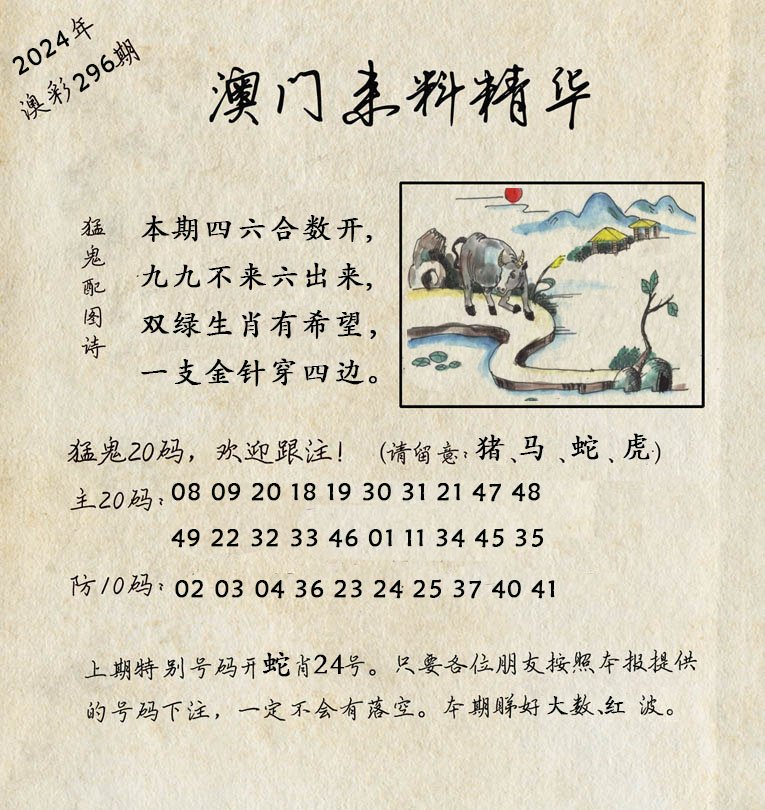 2024年
澳彩296期
澳门来料精华
猛鬼配图诗
本期四六合数开,
九九不来六出来,
双绿生肖有希望,
一支金针穿四边。
猛鬼20码，欢迎跟注！（请留意：猪、马、蛇、虎）
主20码：08 09 20 18 19 30 31 21 47 48
49 22 32 33 46 01 11 34 45 35
防10码：02 03 04 36 23 24 25 37 40 41
上期特别号码开蛇肖24号。只要各位朋友按照本报提供
的号码下注，一定不会有落空。本期睇好大数、红 波。